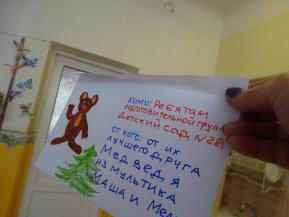 Кому: Ребятам
подготовительной групп
Детский сад №28
От кого: от их
лучшего друга
Медведя
из мультика
Маша и Ме